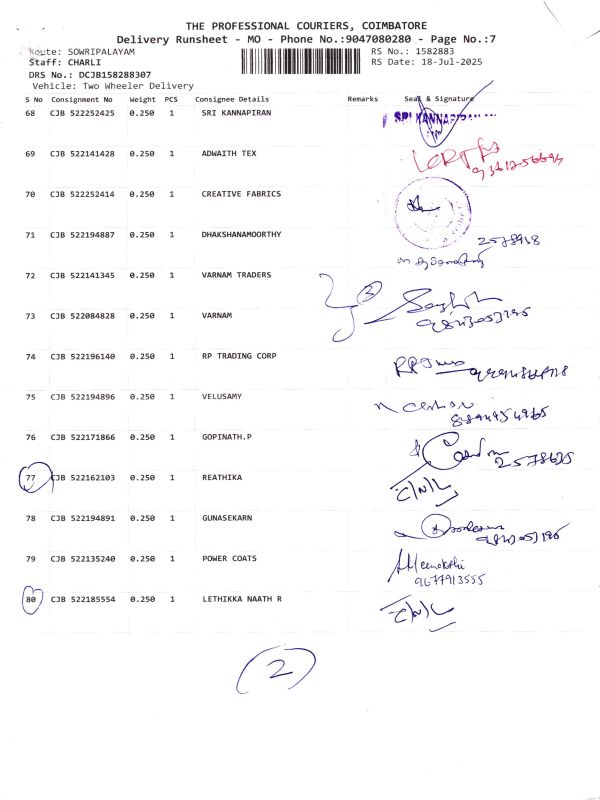 THE PROFESSIONAL COURIERS, COIMBATORE
Delivery Runsheet - MO - Phone No.:9047080280 - Page No.:7
Route: SOWRIPALAYAM RS No.: 1582883
Staff: CHARLI RS Date: 18-Jul-2025
DRS No.: DCJB158288307
Vehicle: Two Wheeler Delivery
S No Consignment No Weight PCS Consignee Details Remarks Seal & Signature
68 CJB 522252425 0.250 1 SRI KANNAPIRAN SRI KANNAPIRAN
69 CJB 522141428 0.250 1 ADWAITH TEX
70 CJB 522252414 0.250 1 CREATIVE FABRICS
71 CJB 522194887 0.250 1 DHAKSHANAMOORTHY 2578918
72 CJB 522141345 0.250 1 VARNAM TRADERS 2
73 CJB 522084828 0.250 1 VARNAM
74 CJB 522196140 0.250 1 RP TRADING CORP
75 CJB 522194896 0.250 1 VELUSAMY
76 CJB 522171866 0.250 1 GOPINATH.P 2578635
77 CJB 522162103 0.250 1 REATHIKA
78 CJB 522194891 0.250 1 GUNASEKARN
79 CJB 522135240 0.250 1 POWER COATS Meenakshi
9677913555
80 CJB 522185554 0.250 1 LETHIKKA NAATH R
2